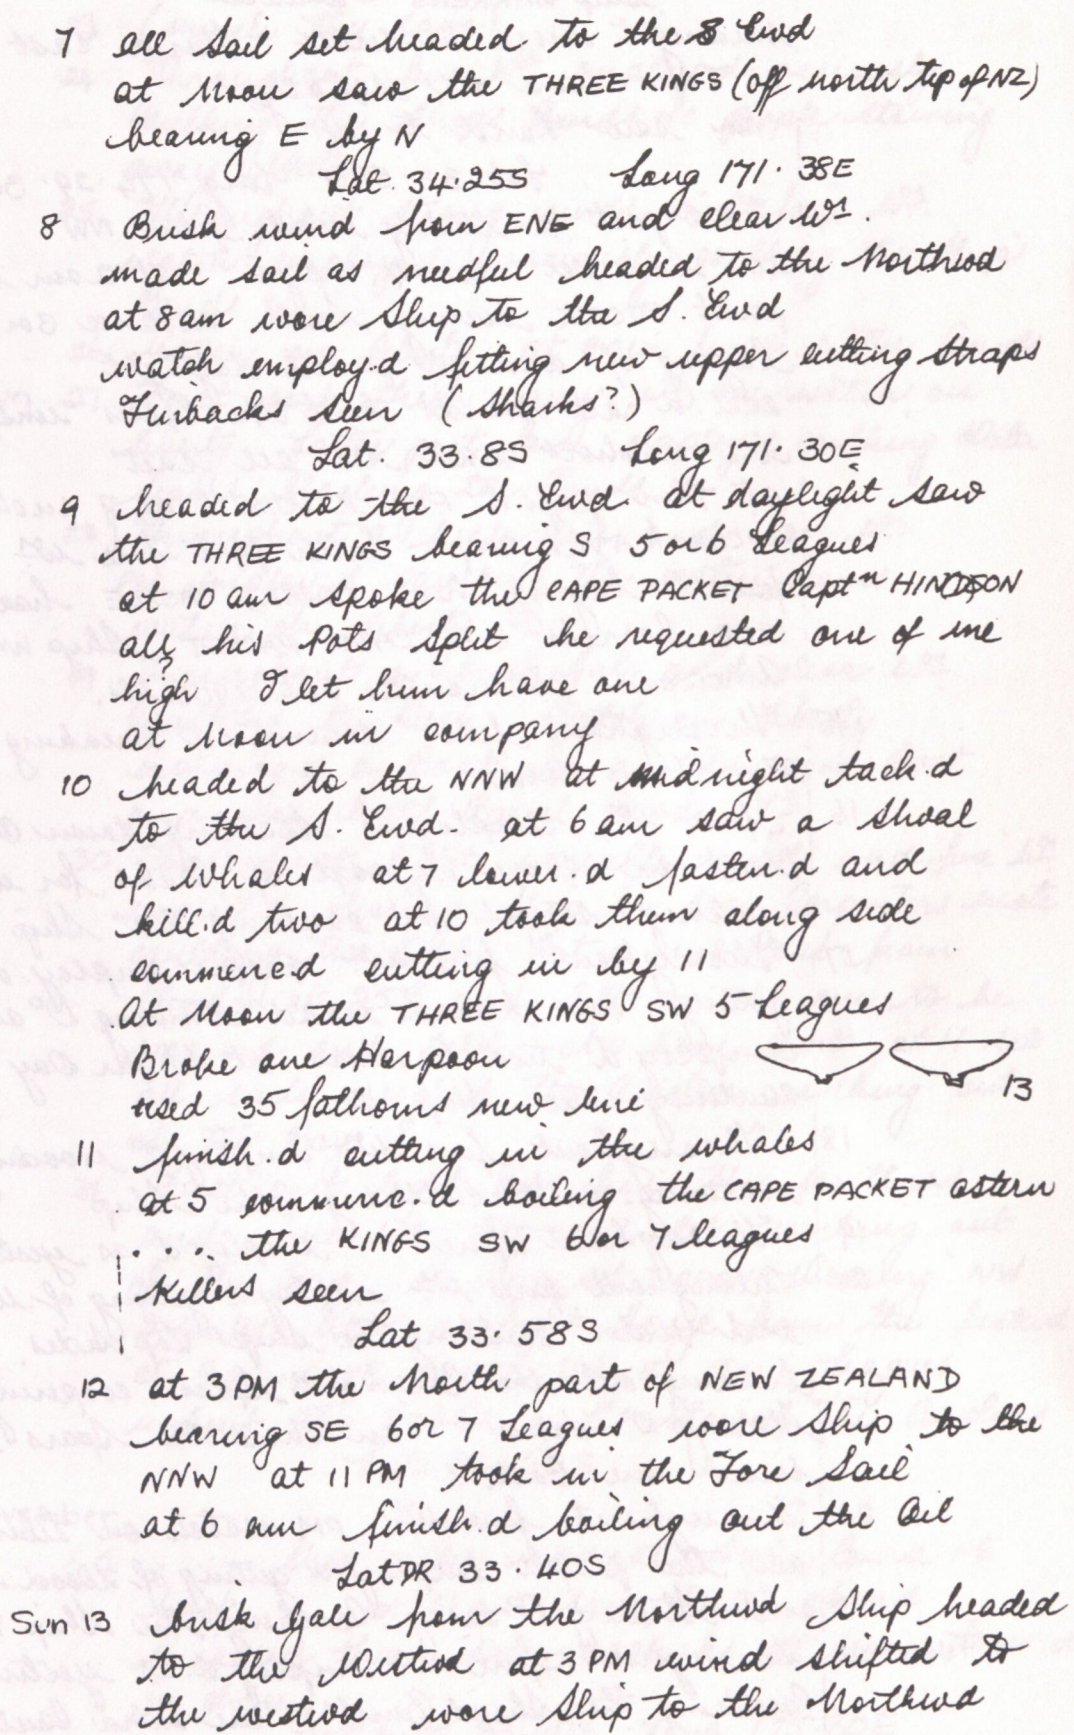 7 all sail set headed to the S Ewd
at Noon saw the THREE KINGS (off north tip of NZ)
bearing E by N
Lat. 34.25S Long 171. 38E
8 Brisk wind from ENE and clear Wr.
made sail as needful headed to the Northwd
at 8am wore Ship to the S. Ewd
watch employ.d fitting new upper cutting straps
Finbacks seen (sharks?)
Lat. 33.8S Long 171. 30E
9 headed to the S. Ewd. at daylight saw
the THREE KINGS bearing S 5 or 6 Leagues
at 10 am spoke the CAPE PACKET Captn HINDSON
all his Pots split he requested one of me
high I let him have one
at Noon in company
10 headed to the NNW at Midnight tack.d
to the S. Ewd. at 6 am saw a shoal
of Whales at 7 lower.d fasten.d and
kill.d two at 10 took them along side
commenced cutting in by 11
At Noon the THREE KINGS SW 5 Leagues
Broke one Harpoon
used 35 fathoms new line 13
11 finish.d cutting in the whales
at 5 commenc.d boiling the CAPE PACKET astern
. . . . the KINGS SW 6 or 7 leagues
Killers seen
Lat 33. 58S
12 at 3PM the North part of NEW ZEALAND
bearing SE 6 or 7 Leagues wore ship to the
NNW at 11 PM took in the Fore Sail
at 6 am finish.d boiling out the Oil
Lat DR 33. 40S
Sun 13 brisk Gale from the Northwd Ship headed
to the Westwd at 3 PM wind shifted to
the westwd wore Ship to the Northwd